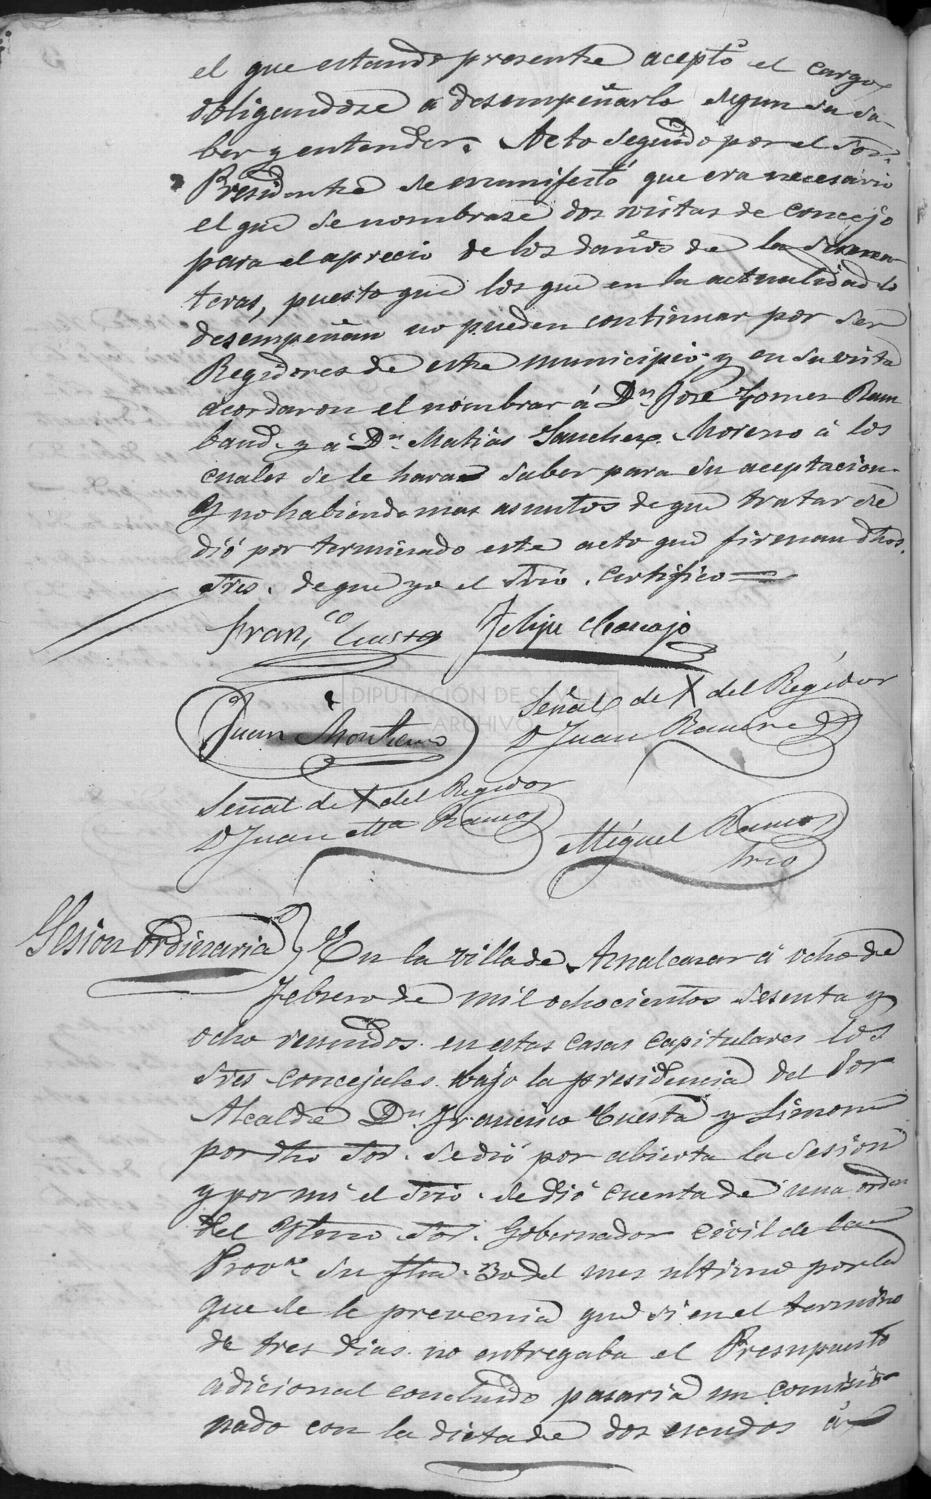 el que estando presente aceptó el cargo
obligandose a desempeñarlo segun su sa-
ber y entender. Acto seguido por el Sor.
Presidente se manifestó que era necesario
el que se nombrase dos vistas de concejo
para el aprecio de los daños de la semen-
teras, puesto que los que en la actualidad lo
desempeñan no pueden continuar por ser
Regidores de este municipio y en su vista
acordaron el nombrar á Dn. José Gomez Ram
baud y á Dn. Matias Sanchez Moreno á los
cuales se le hara saber para su aceptacion.
Y no habiendo mas asuntos de que tratar se
dió por terminado este acto que firman dhos.
Sres. de que yo el Srio. certifico
Franco. Cuesta Felipe
DIPUTACIÓN DE SEVILLA
ARCHIVO
Señal de X del Regidor
Juan
D Juan
Señal de X del Regidor
D Juan Ma Ramos
Miguel Ramos
Srio
Sesion ordinaria } En la villa de Aznalcazar á ocho de
Febrero de mil ochocientos sesenta y
ocho reunidos en estas casas capitulares los
Sres concejales bajo la presidencia del Sor
Alcalde Dn. Francisco Cuesta y Limon
por dho Sor. se dió por abierta la sesion
y por mi el Srio. se dió cuenta de una orden
del Sor. Gobernador civil de la
Prova. su fha. 30 del mes ultimo por la
que se le prevenia que si en el termino
de tres dias no entregaba el Presupuesto
adicional concluido pasaria un comisio-
nado con la dieta de dos escudos á